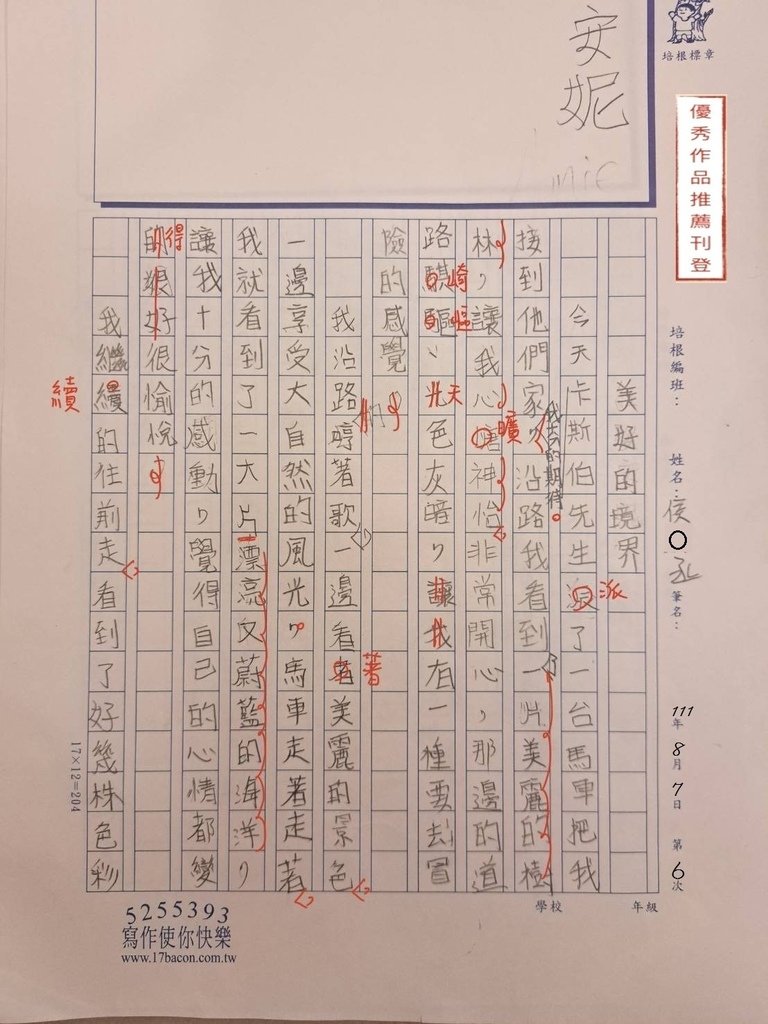 安妮
培根標章
優秀作品推薦刊登
培根編班：
姓名：侯〇丞
筆名：
111年8月7日 第6次
學校 年級
美好的境界
今天卡斯伯先生了一台馬車把我
派
接到他們家，沿路我看到一片美麗的樹
我去的期待。
林，讓我心神怡非常開心，那邊的道
曠
路騏驅、光色灰暗，讓我有一種要去冒
崎嶇
天
險的感覺
我沿路哼著歌一邊看美麗的景色
們
著
一邊享受大自然的風光，馬車走著走著
我就看到了一大片漂亮又蔚藍的海洋，
讓我十分的感動，覺得自己的心情都變
的很好很愉悅
得
我繼續的往前走看到了好幾株色彩
續
17×12=204
5255393
寫作使你快樂
www.17bacon.com.tw